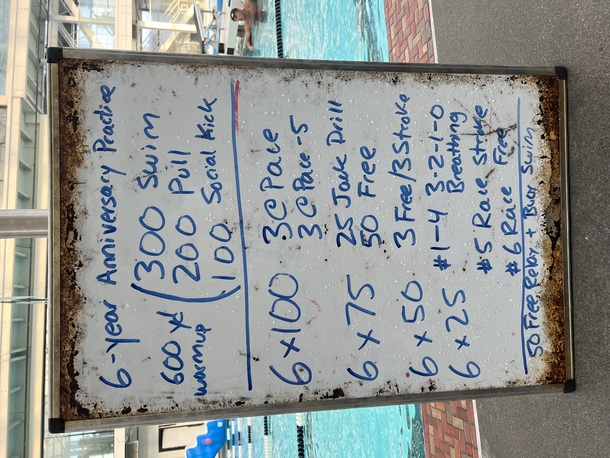 6-Year Anniversary Practice
600 x ( 300 Swim
warmup 200 Pull
100 Social Kick
6 x 100 3 @ Pace
3 @ Pace-5
6 x 75 25 Jack Drill
50 Free
6 x 50 3 Free/3 Stroke
6 x 25 #1-4 3-2-1-0
Breathing
#5 Race Stroke
#6 Race Free
50 Free Relay + Buoy Swim